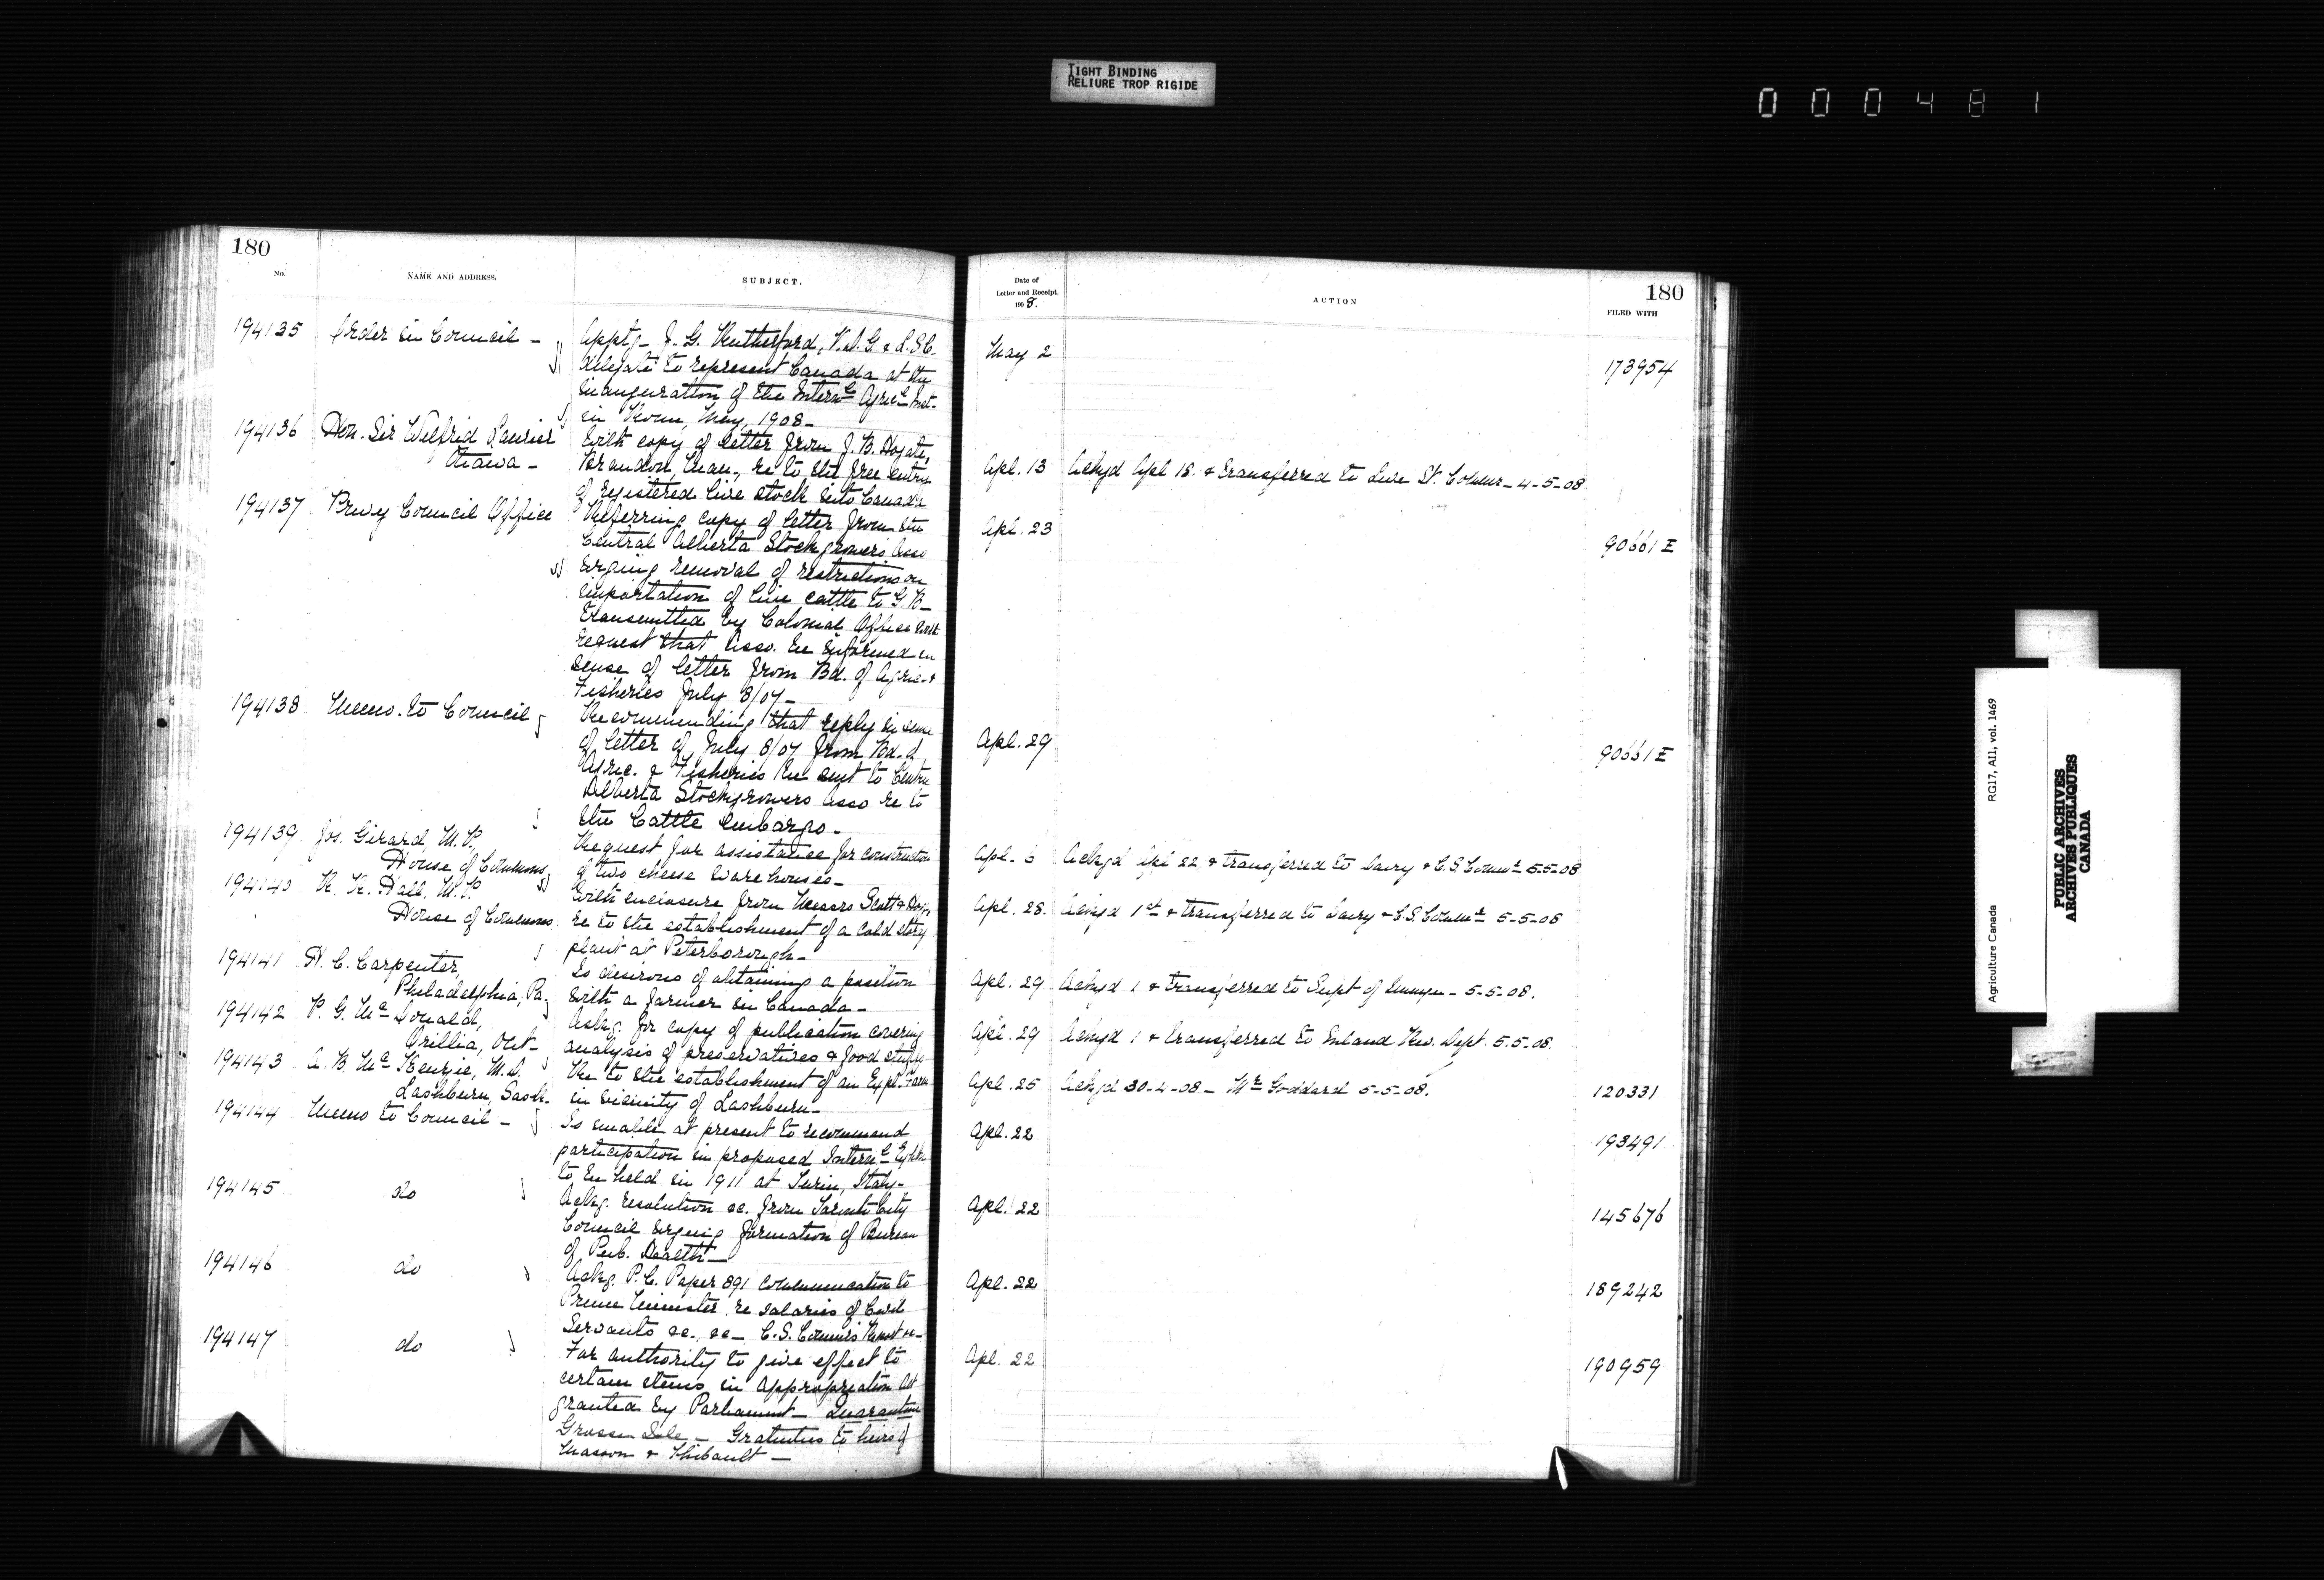 TIGHT BINDING
RELIURE TROP RIGIDE
000481
180
No.
NAME AND ADDRESS.
SUBJECT.
194135 Order in Council –
Apptg – J. G. Rutherford, V.D.G. & L.S.C.
delegate to represent Canada at the
inauguration of the Internl Agricl Inst.
in Rome, May, 1908 –
194136 Hon. Sir Wilfrid Laurier
Ottawa –
With copy of letter from J. B. Hogate,
Brandon, Man., re to the free entry
of registered live stock into Canada
194137 Privy Council Office
Referring copy of letter from the
Central Alberta Stockgrowers Asso
urging removal of restrictions on
importation of live cattle to G. B –
transmitted by Colonial Office with
request that Asso. be informed in
sense of letter from Bd. of Agric. &
Fisheries July 8/07 –
194138 Memo. to Council
Recommending that reply in sense
of letter of July 8/07 from Bd. of
Agric. & Fisheries be sent to Central
Alberta Stockgrowers Asso re to
the Cattle Embargo –
194139 Jos. Girard, M.P.,
House of Commons
Request for assistance for construction
of two cheese warehouses –
194140 R. R. Hall, M.P.
House of Commons
With enclosure from Messrs Scott &
re to the establishment of a cold storg
plant at Peterborough –
194141 H. C. Carpenter,
Philadelphia, Pa
Is desirous of obtaining a position
with a farmer in Canada –
194142 P. G. Mc Donald,
Orillia, Ont –
Askg. for copy of publication covering
analysis of preservatives & food stuffs
194143 A. B. Mc Kenzie, M.D.
Lashburn, Sask.
Re to the establishment of an Expl. Farm
in vicinity of Lashburn –
194144 Memo to Council –
Is unable at present to recommend
participation in proposed Internl Exhbn
to be held in 1911 at Turin, Italy –
194145 do
Ackg. resolution &c. from Toronto City
Council urging formation of Bureau
of Pub. Health –
194146 do
Ackg. P.C. Paper 891 communication to
Prime Minister re salaries of Civil
Servants &c., &c – C.S. Commrs Report &c –
194147 do
For authority to give effect to
certain items in appropriation Act
granted by Parliament – Quarantine
Grosse Isle – Gratuities to heirs of
Masson & Thibault –
Date of
Letter and Receipt.
1908.
ACTION
180
FILED WITH
May 2 173954
Apl. 13 Ackgd Apl 18. & transferred to Live St. Commr – 4-5-08
Apl. 23 90661 E
Apl. 29 90661 E
Apl. Ackgd Apl 22 & transferred to Dairy & C.S. Commr 5-5-08
Apl. 28. Ackgd 1st & transferred to Dairy & C.S. Commr 5-5-08
Apl. 29 Ackgd 1 & transferred to Supt of Immgn – 5-5-08.
Apl. 29 Ackgd 1 & transferred to Inland Rev. Dept. 5-5-08.
Apl. 25 Ackgd 30-4-08 – Mr Goddard 5-5-08. 120331
Apl. 22 193491
Apl. 22 145676
Apl. 22 189242
Apl. 22 190959
Agriculture Canada RG17, AI1, vol. 1469
PUBLIC ARCHIVES
ARCHIVES PUBLIQUES
CANADA